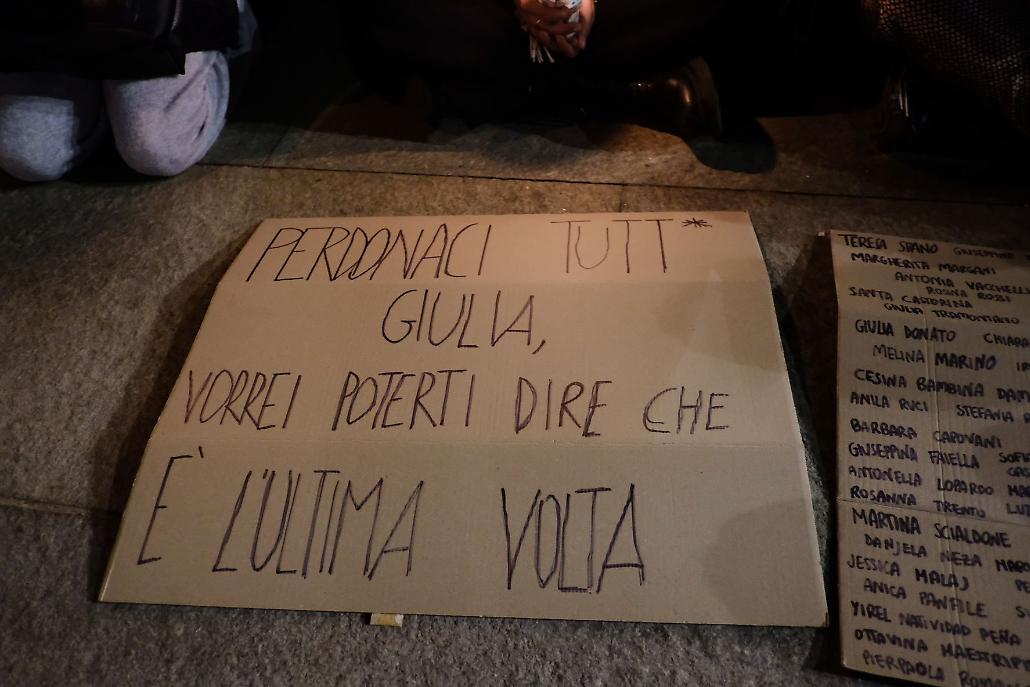 PERDONACI TUTT*
GIULIA,
VORREI POTERTI DIRE CHE
E' L'ULTIMA VOLTA
TERESA SPANO GIUSEPPINA
MARGHERITA MARGANI
ANTONIA VACCHELLI
ROSINA ROSSI
SANTA CASTORINA
GIULIA TRAMONTANO
GIULIA DONATO CHIARA
MELINA MARINO
CESINA BAMBINA DAM
ANILA RUCI STEFANIA
BARBARA CAPOVANI
GIUSEPPINA FAIELLA SOFI
ANTONELLA LOPARDO
ROSANNA TRENTO
MARTINA SCIALDONE
DANJELA NEZA MAR
JESSICA MALAJ
ANICA PANFILE
YIREL NATIVIDAD PEÑA
OTTAVINA MAESTRIP
PIERPAOLA ROMAN